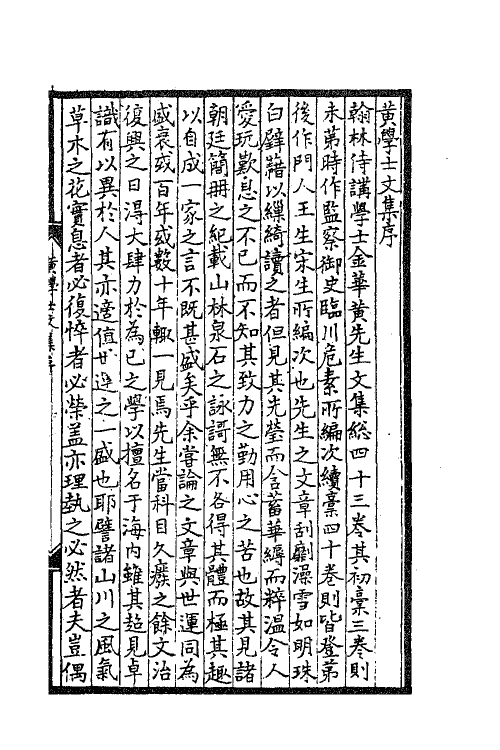 黃學士文集序
翰林侍講學士金華黃先生文集総四十三卷其初藁三卷則
未第時作監察御史臨川危素所編次續藁四十卷則皆登第
後作門人王生宋生所編次也先生之文章刮劘澡雪如明珠
白璧藉以繅綺讀之者但見其光瑩而含蓄華縟而粹温令人
愛玩歎息之不已而不知其致力之勤用心之苦也故其見諸
朝廷簡冊之紀載山林泉石之詠謌無不各得其體而極其趣
以自成一家之言不既甚盛矣乎余甞論之文章與世運同為
盛衰或百年或數十年輒一見焉先生當科目久癈之餘文治
復興之日淂大肆力於為已之學以擅名于海内雖其超見卓
識有以異於人其亦適值世運之一盛也耶譬諸山川之風氣
草木之花實息者必復悴者必榮盖亦理埶之必然者夫豈偶
黃學士文集序